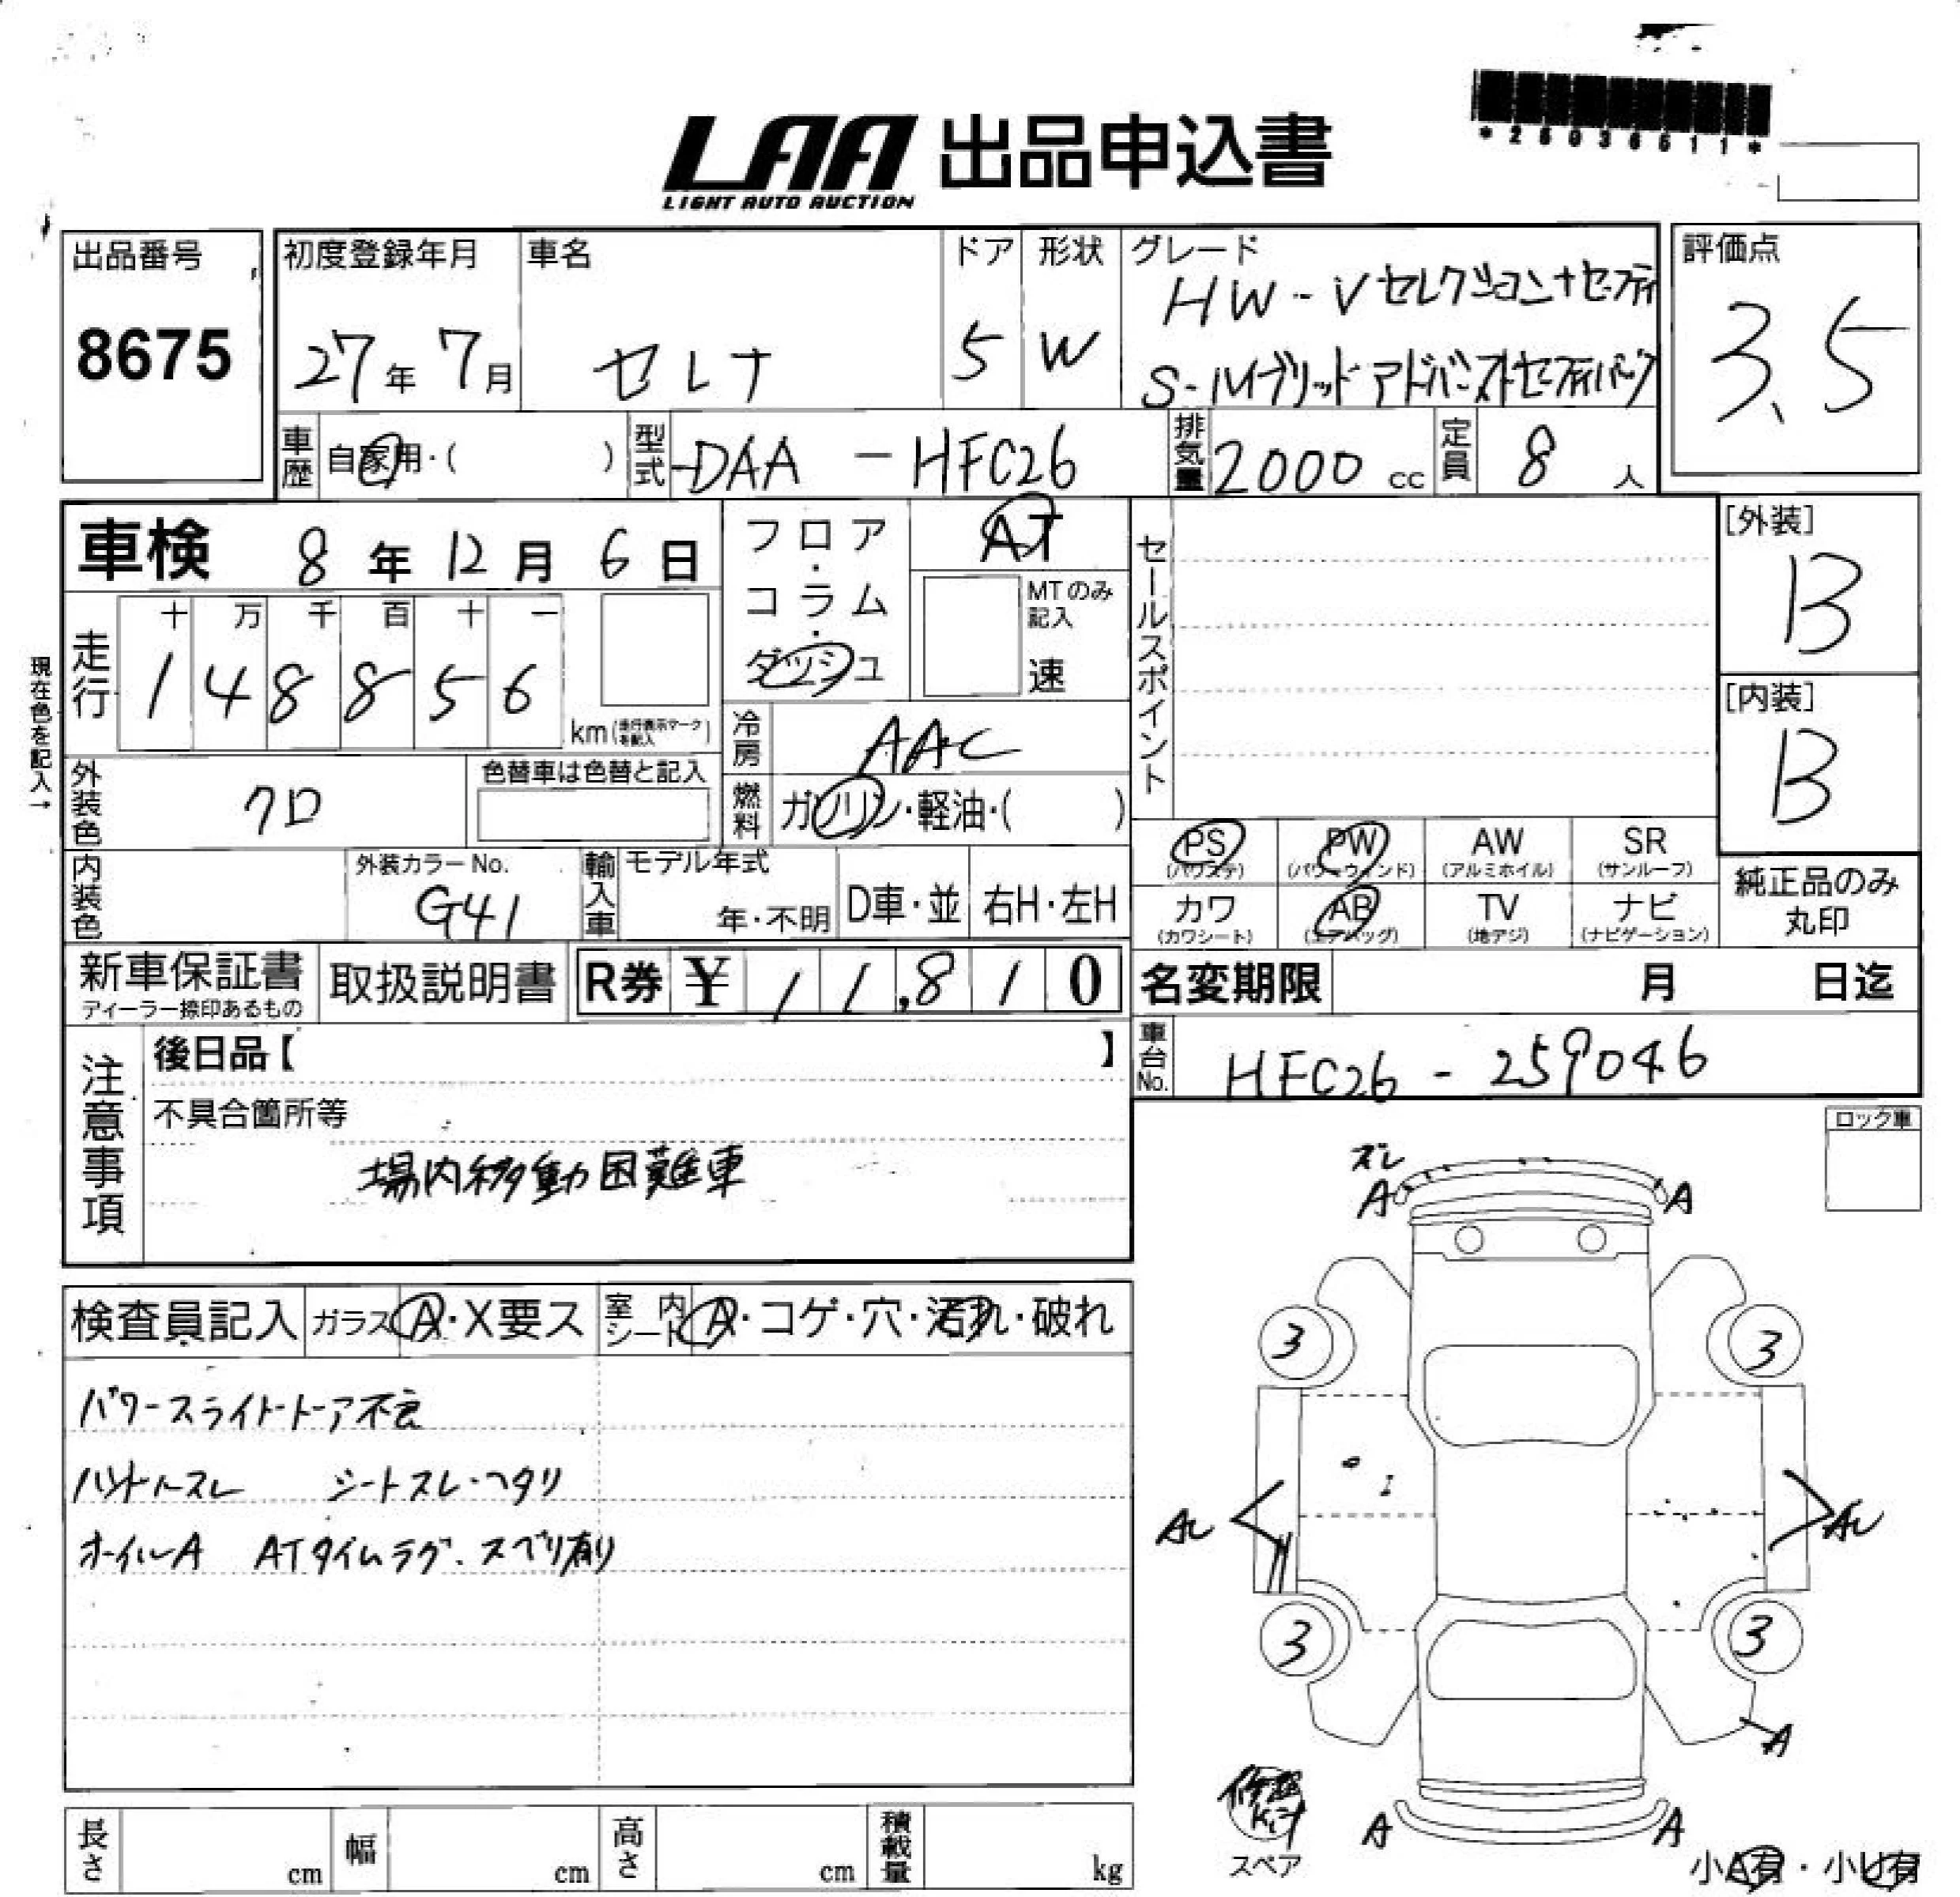 *25036511*
LAA 出品申込書
LIGHT AUTO AUCTION
出品番号
8675
初度登録年月
27年 7月
車名
セレナ
ドア
5
形状
W
グレード
HW-Vセレクション+セーフティ
S-ハイブリッドアドバンストセーフティパック
評価点
3.5
車歴 自家用・( )
型式 DAA - HFC26
排気量 2000 cc
定員 8 人
車検 8年 12月 6日
フロア・コラム・ダッシュ
AT
MTのみ記入
速
セールスポイント
[外装]
B
現在色を記入→
走行
十 万 千 百 十 一
1 4 8 8 5 6
km(走行表示マークを記入)
冷房 AAC
[内装]
B
外装色 クロ
色替車は色替と記入
燃料 ガソリン・軽油・( )
PS (パワステ)
PW (パワーウィンド)
AW (アルミホイル)
SR (サンルーフ)
純正品のみ丸印
内装色
外装カラーNo.
G41
輸入車
モデル年式
年・不明
D車・並
右H・左H
カワ (カワシート)
AB (エアバッグ)
TV (地デジ)
ナビ (ナビゲーション)
新車保証書
ディーラー捺印あるもの
取扱説明書
R券 ¥ 11,810
名変期限 月 日迄
注意事項
後日品【 】
車台No. HFC26-259046
不具合箇所等
場内移動困難車
ロック車
ズレ
A A
検査員記入
ガラス A・X要ス
室内シート A・コゲ・穴・汚れ・破れ
3 3
パワースライドドア不良
ハンドルスレ シートスレ・ヘタリ
ホイルA ATタイムラグ・スベリ有り
3 3
A
A A
スペア
小A有・小U有
長さ cm
幅 cm
高さ cm
積載量 kg